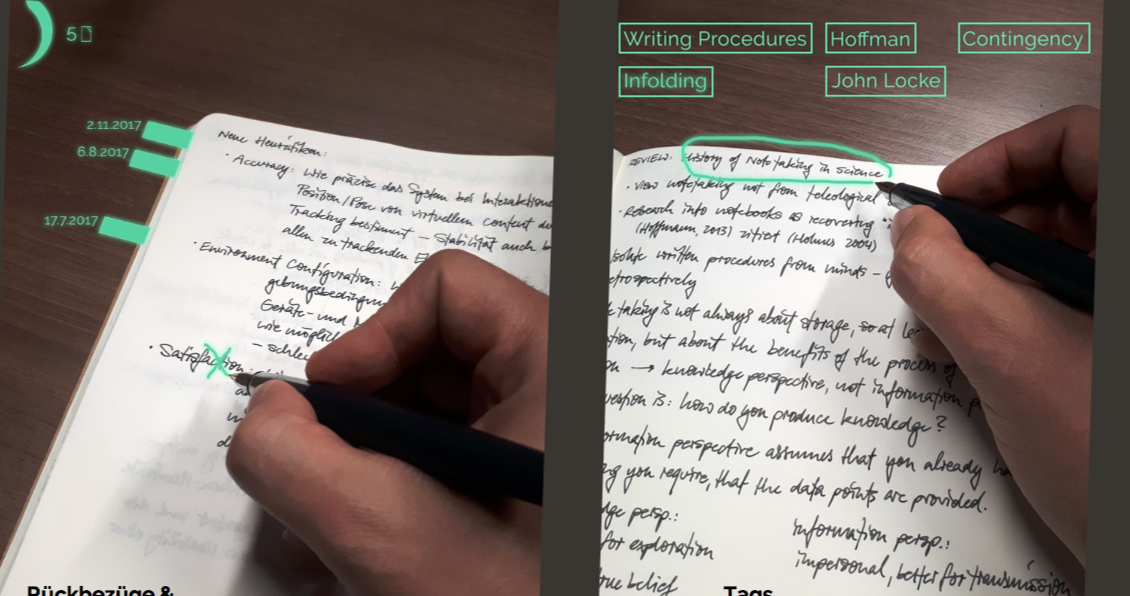 5
2.11.2017
6.8.2017
17.7.2017
Neue Heuristiken:
· Accuracy: wie präzise das System bei Interaktionen
Position/Pose von virtuellem content
Tracking bestimmt – Stabilität auch
allen zu trackenden
· Environment Configuration:
gebungsbedingun
Geräte- und
wie möglich
– schle
· Satisfaction:
Rückbezüge &
Writing Procedures
Hoffman
Contingency
Infolding
John Locke
REVIEW: History of Notetaking in Science
· View notetaking not from teleological
· Research into notebooks as recovering
(Hoffmann, 2013) zitiert (Holmes 2004)
isolate written procedures from minds –
etrospectively
taking is not always about storage, so at
tion, but about the benefits of the process of
on → knowledge perspective, not information p
uestion is: how do you produce knowledge?
ormation perspective assumes that you already
ng you require, that the data points are provided.
dge persp.:
for exploration
true belief
information persp.:
impersonal, better for transmission
Tags